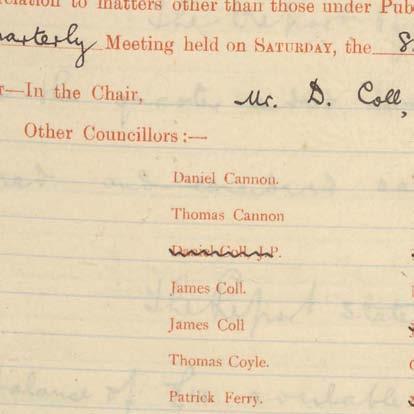 relation to matters other than those under Pub
arterly Meeting held on SATURDAY, the 8
—In the Chair, Mr. D. Coll,
Other Councillors :—
Daniel Cannon.
Thomas Cannon
Daniel Coll, J.P.
James Coll.
James Coll
Thomas Coyle.
Patrick Ferry.